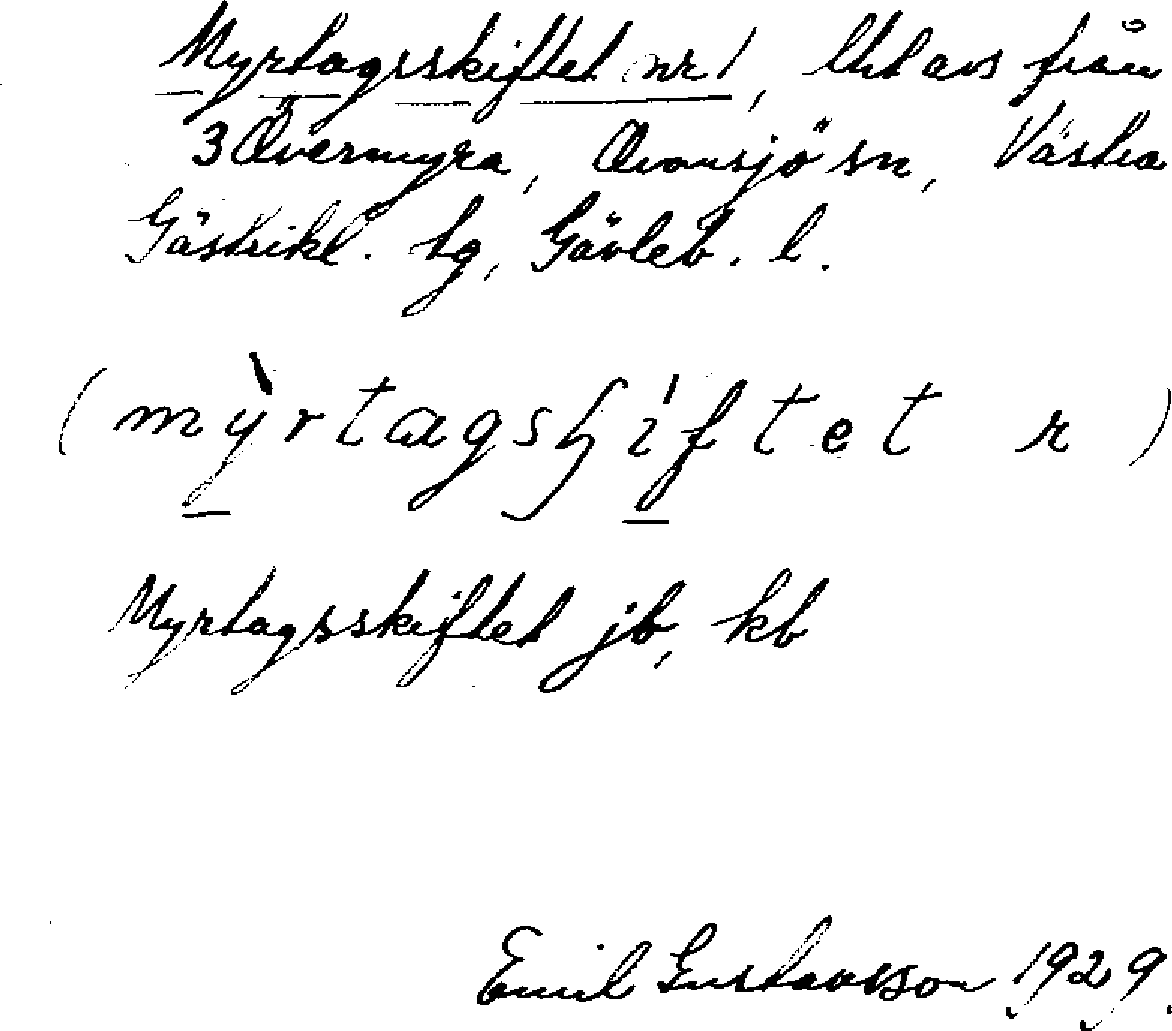 Myrtagsskiftet nr 1, lht avs från
3 Övermyra, Ovansjö sn, Västra
Gästrikl. tg, Gävleb. l.
(mỳrtagsꞕíftet r)
Myrtagsskiftet jb, kb
Emil Gustavsson 1929.